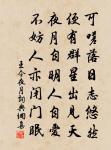 可嗟落日悠悠
有群星出見天
夜月自明人自愛
不妨人亦閉門眠
王令夜月詞典網集